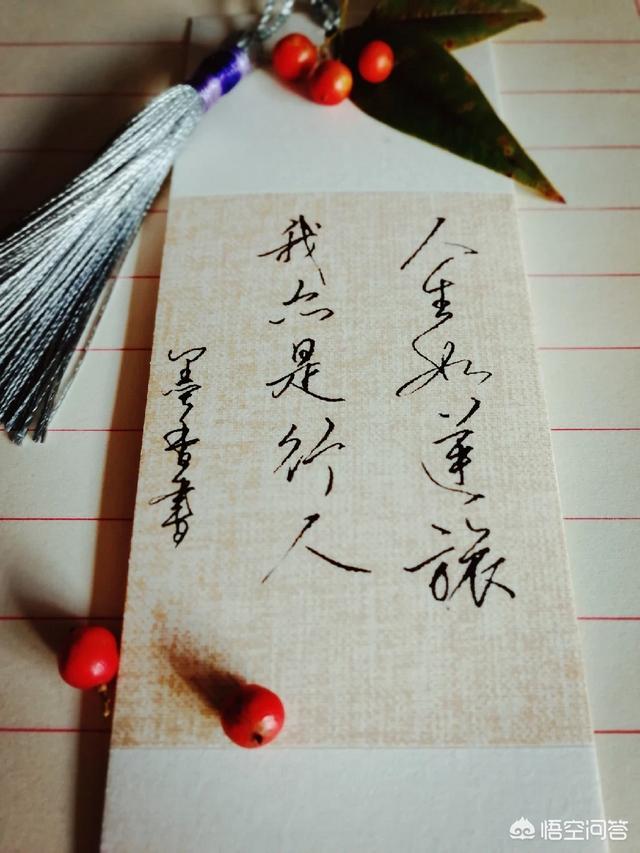 人生如逆旅
我亦是行人
墨香書
悟空问答